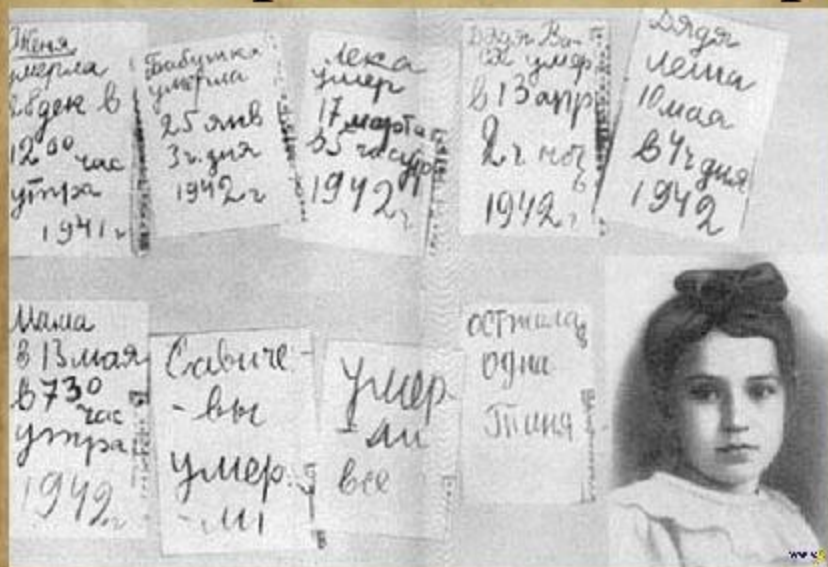 Женя
умерла
28 дек в
12 00 час
утра
1941 г
Бабушка
умерла
25 янв
3 ч. дня
1942 г
Лека
умер
17 марта
в 5 час утр
1942 г
Дядя Ва-
ся умер
в 13 апр
2 ч ноч
1942 г
Дядя
Леша
10 мая
в 4 ч дня
1942
Мама
в 13 мая
в 7 30
час
утра
1942 г
Савиче-
-вы
умер.
-ли
Умер
-ли
все
Осталась
одна
Таня